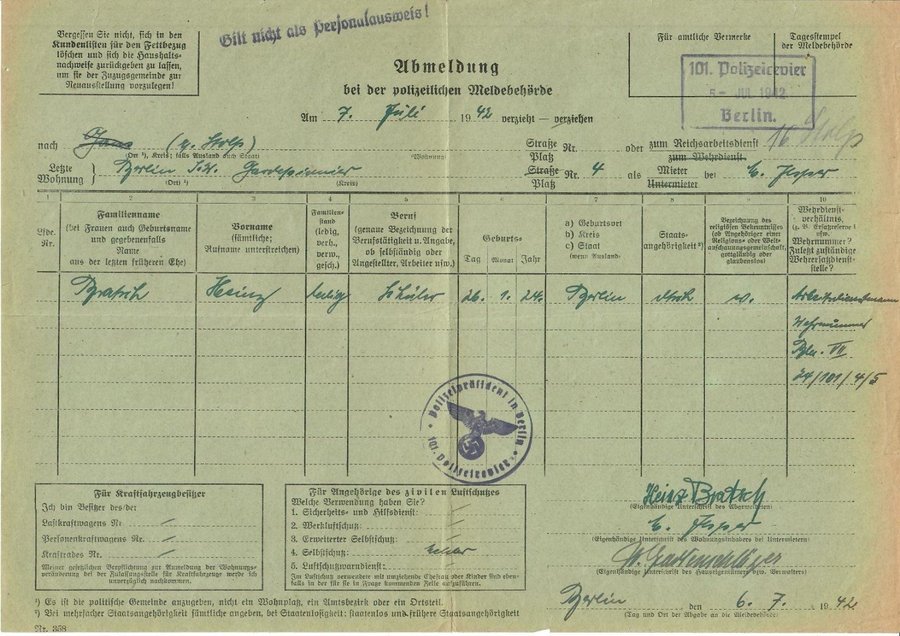 Vergessen Sie nicht, sich in den
Kundenlisten für den Fettbezug
löschen und sich die Haushalts-
nachweise zurückgeben zu lassen,
um sie der Zuzugsgemeinde zur
Neuausstellung vorzulegen!
Gilt nicht als Personalausweis!
Abmeldung
bei der polizeilichen Meldebehörde
Für amtliche Vermerke
Tagesstempel
der Meldebehörde
101. Polizeirevier
6- JUL 1942
Berlin.
Am 7. Juli 1942 verzieht — verziehen
16 Stolp
nach Jana (n. Stolp) Straße Nr. oder zum Reichsarbeitsdienst
(Ort ¹), Kreis; falls Ausland auch Staat) (Wohnung) Platz zum Wehrdienst
Letzte Wohnung Berlin S.W. Gardepionier Straße Platz Nr. 4 als Mieter Untermieter bei E.
(Ort) ¹) (Kreis)
1 2 3 4 5 6 7 8 9 10
Lfde. Nr.
Familienname
(bei Frauen auch Geburtsname
und gegebenenfalls
Name
aus der letzten früheren Ehe)
Vorname
(sämtliche;
Rufname unterstreichen)
Familien-
stand
(ledig,
verh.,
verw.,
gesch.)
Beruf
(genaue Bezeichnung der
Berufstätigkeit u. Angabe,
ob selbständig oder
Angestellter, Arbeiter usw.)
Geburts-
Tag Monat Jahr
a) Geburtsort
b) Kreis
c) Staat
(wenn Ausland)
Staats-
angehörigkeit ²)
Bezeichnung des
religiösen Bekenntnisses
(ob Angehöriger einer
Religions- oder Welt-
anschauungsgemeinschaft,
gottgläubig oder
glaubenslos)
Wehrdienst-
verhältnis,
(z. B. Ersatzreserve I
usw.
Wehrnummer?
Zuletzt zuständige
Wehrersatzdienst-
stelle?
Bratsch Heinz ledig Schüler 26. 1. 24. Berlin dtsch v. Arbeitsdienstmann
Wehrnummer
Bln. VII
24/101/4/5
Polizeipräsident in Berlin
101. Polizeirevier
Für Kraftfahrzeugbesitzer
Ich bin Besitzer des/der
Lastkraftwagens Nr
Personenkraftwagens Nr.
Kraftrades Nr.
Meiner gesetzlichen Verpflichtung zur Anmeldung der Wohnungs-
veränderung bei der Zulassungsstelle für Kraftfahrzeuge werde ich
unverzüglich nachkommen.
Für Angehörige des zivilen Luftschutzes
Welche Verwendung haben Sie?
1. Sicherheits- und Hilfsdienst:
2. Werkluftschutz:
3. Erweiterter Selbstschutz:
4. Selbstschutz:
5. Luftschutzwarndienst:
Im Luftschutz verwendete mit umziehende Ehefrau oder Kinder sind eben-
falls in der für sie in Frage kommenden Zeile aufzuführen.
Heinz Bratsch
(Eigenhändige Unterschrift des Abwandernden)
E.
(Eigenhändige Unterschrift des Wohnungsinhabers bei Untermietern)
W. Gartenschläger
(Eigenhändige Unterschrift des Hauseigentümers bzw. Verwalters)
Berlin den 6. 7. 1942
(Tag und Ort der Abgabe an die Meldebehörde)
¹) Es ist die politische Gemeinde anzugeben, nicht ein Wohnplatz, ein Amtsbezirk oder ein Ortsteil.
²) Bei mehrfacher Staatsangehörigkeit sämtliche angeben, bei Staatenlosigkeit: staatenlos und frühere Staatsangehörigkeit
Nr. 358